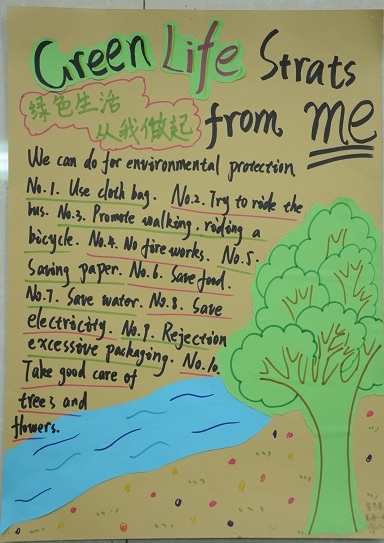 Green Life Strats
绿色生活
从我做起
from me
We can do for environmental protection
No.1. Use cloth bag. No.2. Try to ride the
bus. No.3. Promote walking. riding a
bicycle. No.4. No fireworks. No.5.
Saving paper. No.6. Save food.
No.7. Save water. No.8. Save
electricity. No.9. Rejection
excessive packaging. No.10.
Take good care of
trees and
flowers.